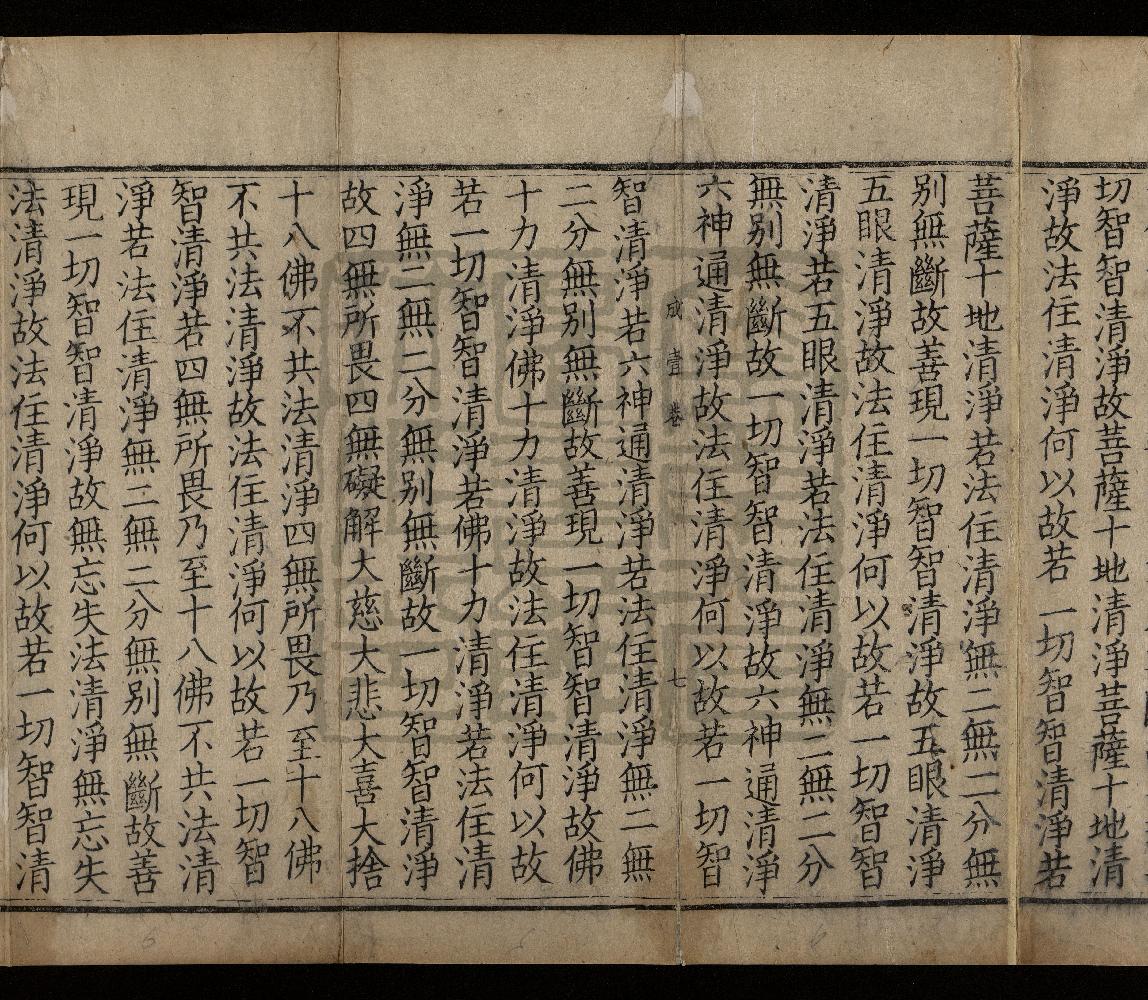 切智智清淨故菩薩十地清淨菩薩十地清
淨故法住清淨何以故若一切智智清淨若
菩薩十地清淨若法住清淨無二無二分無
别無斷故善現一切智智清淨故五眼清淨
五眼清淨故法住清淨何以故若一切智智
清淨若五眼清淨若法住清淨無二無二分
無别無斷故一切智智清淨故六神通清淨
六神通清淨故法住清淨何以故若一切智
成 壹 卷 七
智清淨若六神通清淨若法住清淨無二無
二分無别無斷故善現一切智智清淨故佛
十力清淨佛十力清淨故法住清淨何以故
若一切智智清淨若佛十力清淨若法住清
淨無二無二分無别無斷故一切智智清淨
故四無所畏四無礙解大慈大悲大喜大捨
十八佛不共法清淨四無所畏乃至十八佛
不共法清淨故法住清淨何以故若一切智
智清淨若四無所畏乃至十八佛不共法清
淨若法住清淨無二無二分無别無斷故善
現一切智智清淨故無忘失法清淨無忘失
法清淨故法住清淨何以故若一切智智清